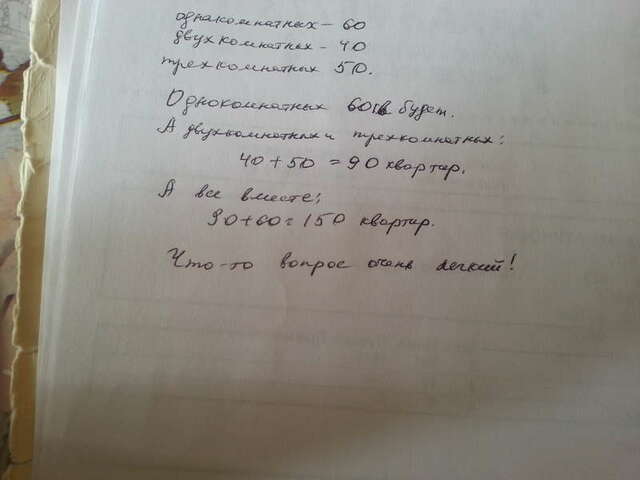 однакомнатных - 60
двухкомнатных - 40
трехкомнатных 50.
Однокомнатных 60 будет.
А двухкомнатных и трехкомнатных:
40 + 50 = 90 квартир.
А все вместе:
90+60=150 квартир.
Что-то вопрос очень легкий!